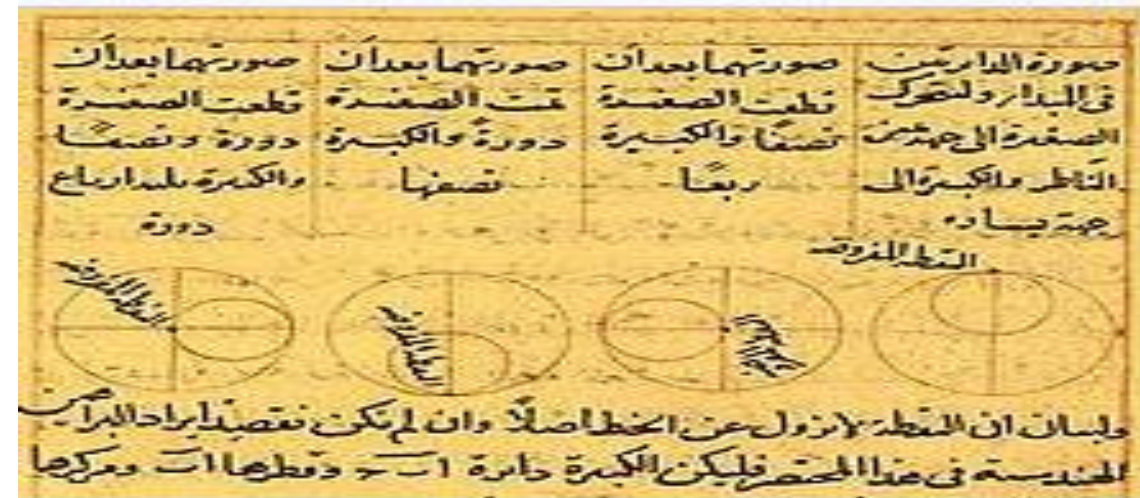 صورة الدائرتين
فى المبدا، ولتتحرك
الصغيرة الى جهة يمين
الناظر والكبيرة الى
جهة يساره
صورتهما بعد ان
قطعت الصغيرة
نصفًا والكبيرة
ربعًا
صورتهما بعد ان
تمت الصغيرة
دورةً والكبيرة
نصفها
صورتهما بعد ان
قطعت الصغيرة
دورة ونصفًا
والكبيرة ثلثة ارباع
دورة
النقطة المفروضة
النقطة المفروضة
النقطة المفروضة
ولبيان ان النقطة لا تزول عن الخط اصلًا وان لم تكن نقصد ايراد البراهين
الهندسية فى هذا المختصر فليكن الكبيرة دائرة ا ب ج وقطرها ا ب ومركزها